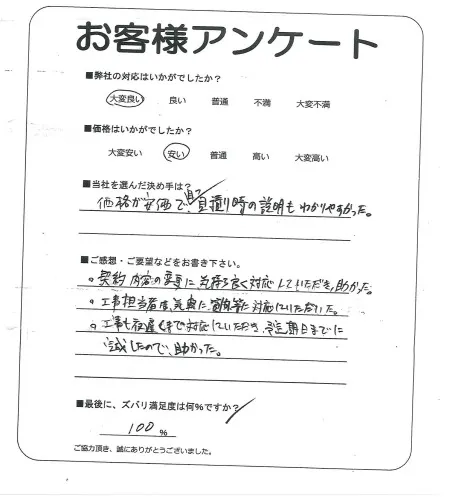 お客様アンケート
■弊社の対応はいかがでしたか?
大変良い 良い 普通 不満 大変不満
■価格はいかがでしたか?
大変安い 安い 普通 高い 大変高い
■当社を選んだ決め手は?
価格が安価で、且つ見積り時の説明もわかりやすかった。
■ご感想・ご要望などをお書き下さい。
。契約内容の変更に気持ち良く対応していただき、助かった。
。工事担当者は、誠実に、対応していただいた。
。工事も夜遅くまで対応していただき、予定期日までに
完成したので、助かった。
■最後に、ズバリ満足度は何%ですか?
100 %
ご協力頂き、誠にありがとうございました。